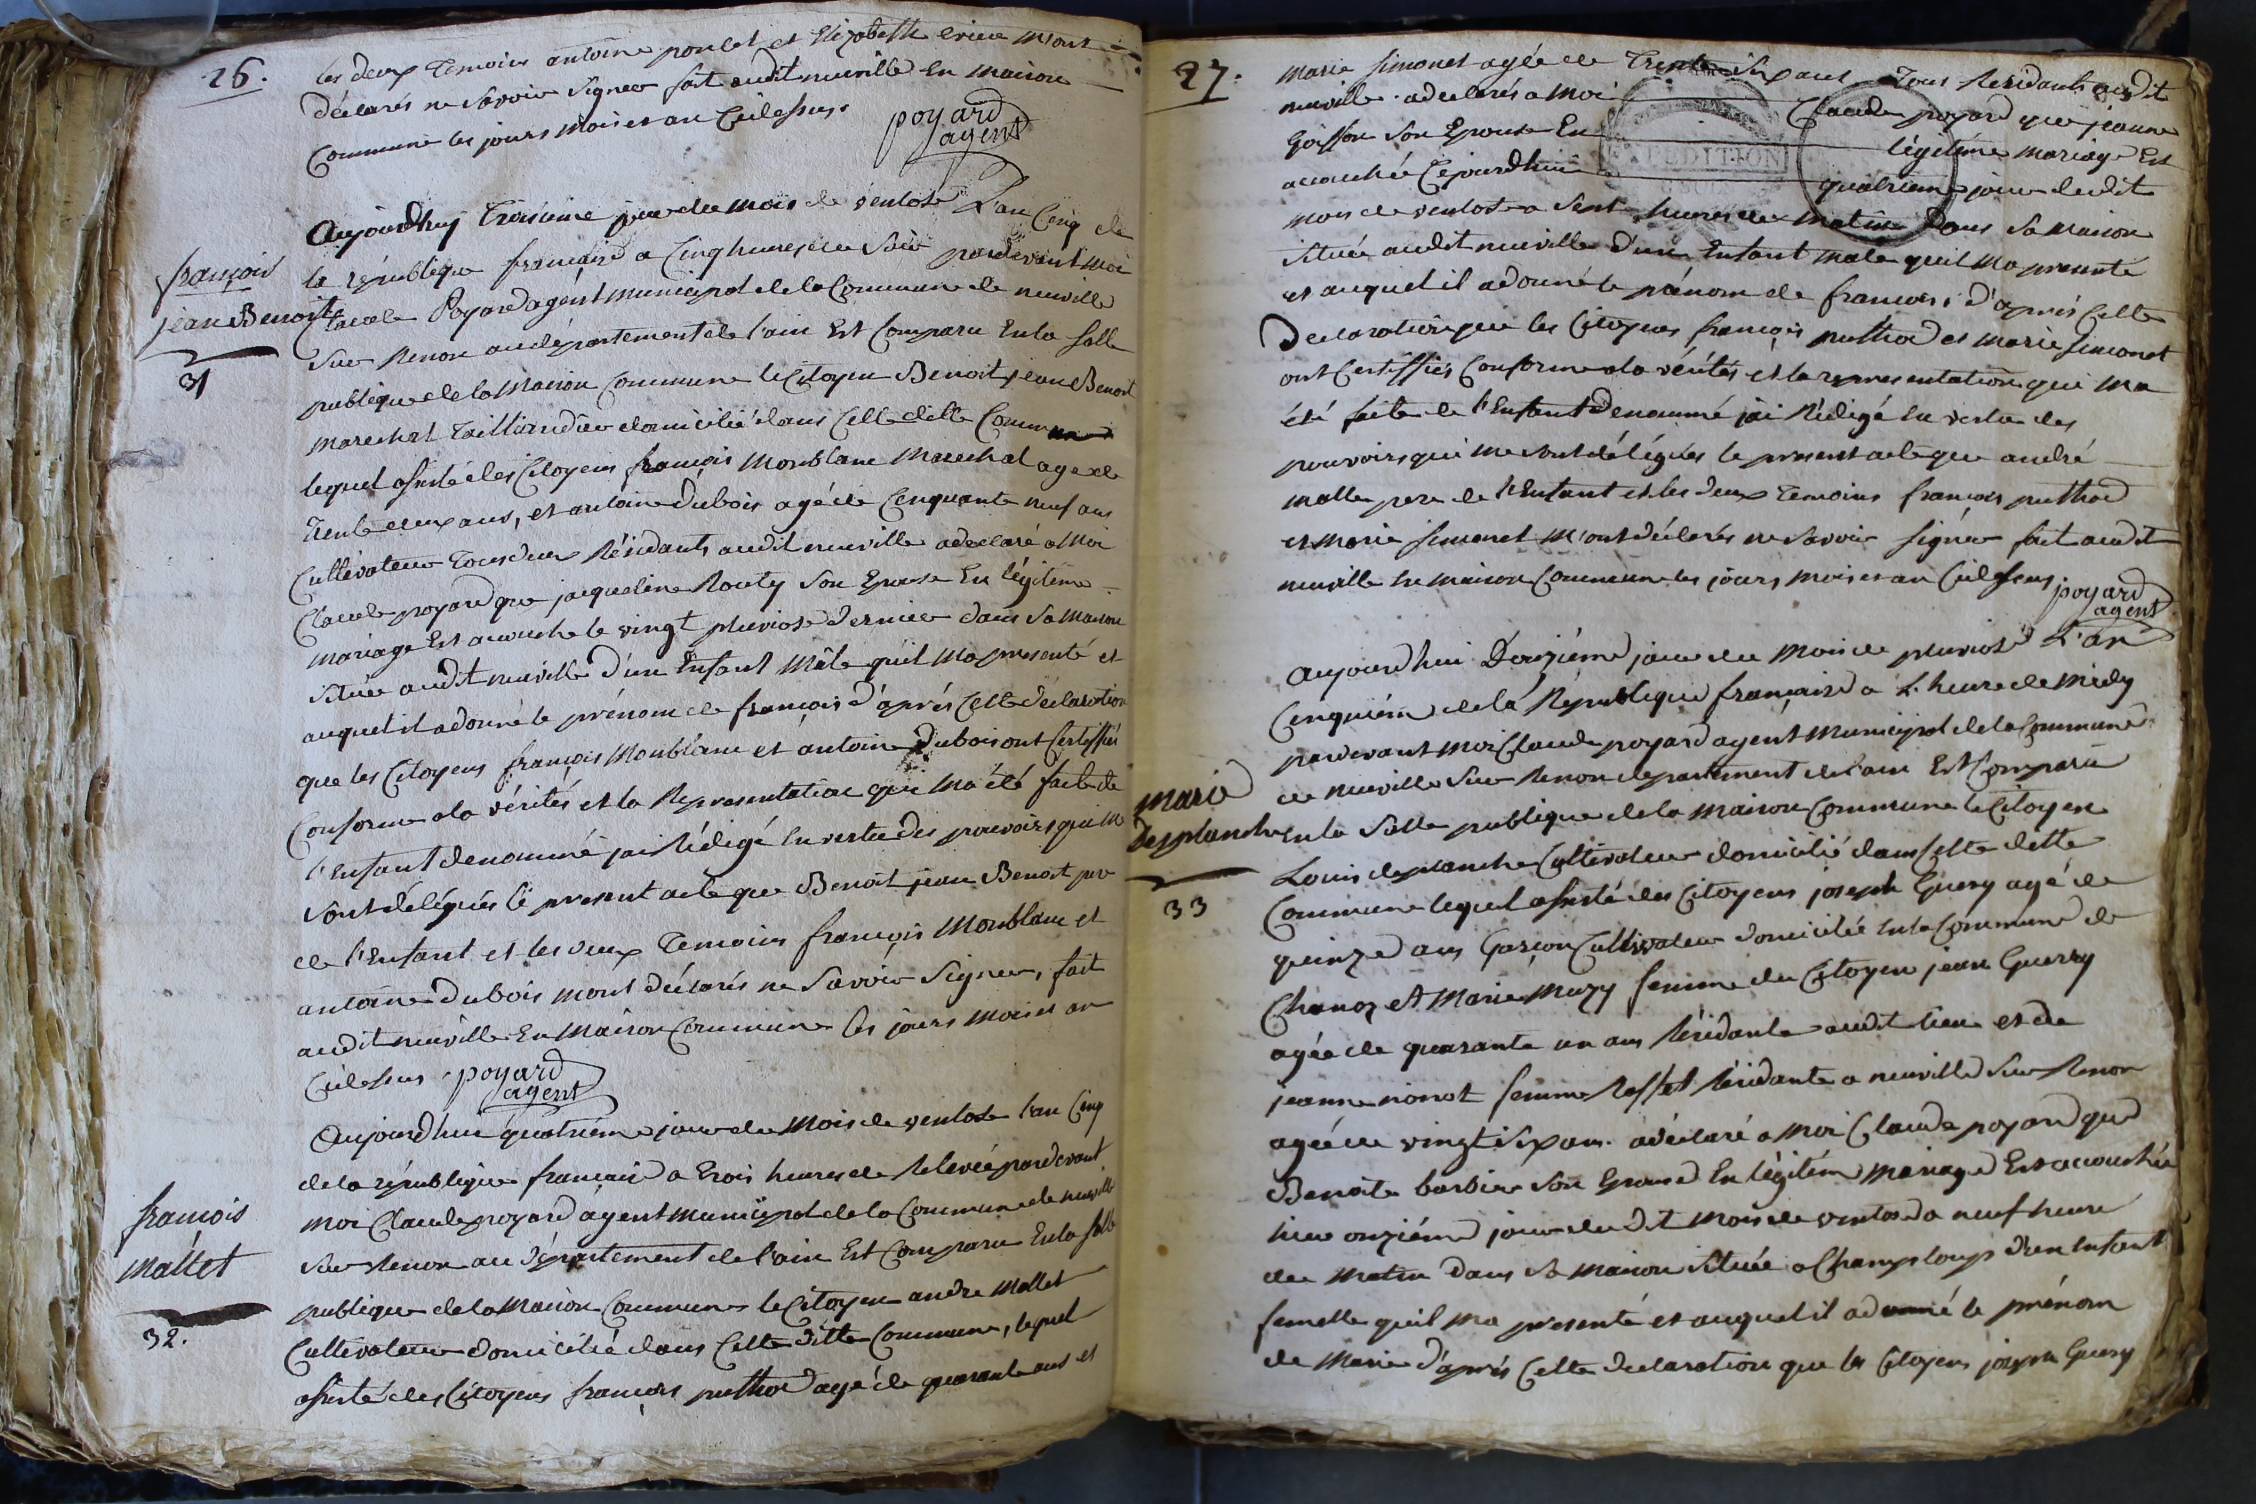 26.
les deux temoins antoine poncet et Elizabeth mont
déclarés ne Savoir Signer fait audit neuville En maison
Commune les jours mois et an Cidessus.
poyard
agent
françois
jean Benoit
31
Aujourdhuy troisieme jour du mois de ventose L'an Cinq de
la république française a Cinq heures du Soir pardevant moi
Claude Poyard agent municipal de la Commune de neuville
Sur Renon au département de l'ain Est Comparu En la Salle
publique de la Maison Commune le Citoyen Benoit jean Benoit
marechal taillandier domicilié dans Cette ditte Commune
lequel assisté des Citoyens françois Monblanc Marechal age de
trente deux ans, et antoine Dubois agé de Cinquante neuf ans
Cultivateur tous deux Résidants audit neuville a declaré a Moi
Claude poyard que jacqueline Routy Son Epouse En légitime
mariage Est acouche le vingt pluviose dernier dans Sa Maison
Située audit neuville d'un Enfant Mâle quil Ma presenté et
auquel il a donné le prénom de françois d'après Cette déclaration
que les Citoyens françois Monblanc et antoine Dubois ont Certiffiés
Conforme a la vérités et la Representation qui Ma été faite de
l'Enfant denommé jai Rédigé En vertu des pouvoirs qui me
Sont délégués le present acte que Benoit jean Benoit pere
de l'Enfant et les deux temoins françois Monblanc et
antoine Dubois mont déclarés ne Savoir Signer, fait
audit neuville En Maison Commune les jours mois et an
Cidessus. poyard
agent
françois
mallet
32.
Aujourdhui quatrieme jour du Mois de ventose l'an Cinq
de la république française a trois heures de Relevée pardevant
moi Claude poyard agent municipal de la Commune de neuville
Sur Renon au département de l'ain Est Comparu En la Salle
publique de la Maison Commune le Citoyen andre Mallet
Cultivateur domicilié dans Cette ditte Commune, lequel
assisté des Citoyens françois puthod agé de quarante ans et
27.
Marie Simonet agée de trente Six ans tous Residants audit
neuville a declarés a Moi Claude poyard que jeanne
Goiffon Son Epouse En légitime mariage Est
acouchée Cejourdhui quatrieme jour dudit
mois de ventose a Sept heures du matin dans Sa Maison
Située audit neuville d'un Enfant male quil Ma presenté
et auquel il a donné le prénom de françois, d'après Cette
Declaration que les Citoyens françois puthod et marie Simonet
ont Certiffiés Conforme a la vérités et la representation qui Ma
été faite de l'Enfant denommé jai Rédigé En vertu des
pouvoirs qui me Sont délégués le present acte que andré
mallet pere de l'Enfant et les deux temoins françois puthod
et Marie Simonet M'ont déclarés ne Savoir Signer fait audit
neuville En maison Commune les jours, mois et an Cidessus
poyard
agent
EXPEDITION
marie
Desplanche
33
Aujourdhui Douziéme jour du Mois de pluviose L'an
Cinquiéme de la République française a L'heure de midy
pardevant moi Claude poyard agent Municipal de la Commune
de neuville Sur Renon departement de l'ain Est Comparu
En la Salle publique de la Maison Commune le Citoyen
Louis desplanche Cultivateur domicilié dans Cette ditte
Commune lequel assisté des Citoyens joseph Guery agé de
quinze ans Garçon Cultivateur domicilié En la Commune de
Chanoz et Marie Muzy femme du Citoyen jean Guerry
agée de quarante un ans Résidante audit lieu et de
jeanne nonot femme Residante a neuville Sur Renon
agée de vingt Six ans. a déclaré a Moi Claude poyard que
Benoite barbier Son Epouse En légitime Mariage Est acouchée
hier onziéme jour du dit Mois de ventose a neuf heure
du Matin dans Sa Maison Située a Champ loup d'un Enfant
femelle quil Ma presenté et auquel il a donné le prénom
de Marie d'après Cette declaration que les Citoyens joseph Guery